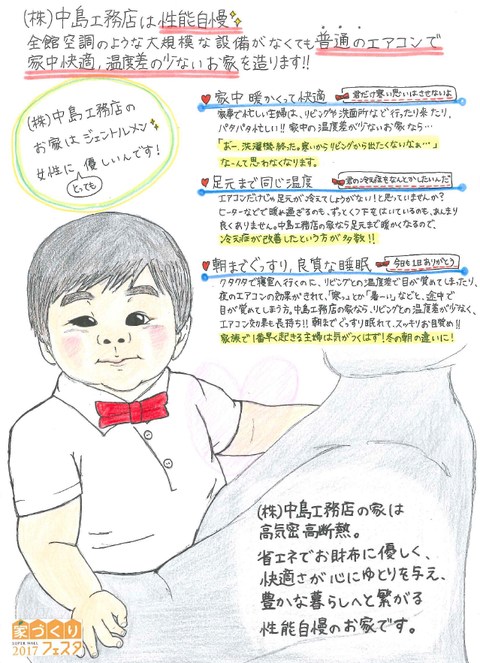 (株)中島工務店は性能自慢✨
全館空調のような大規模な設備がなくても普通のエアコンで
家中快適,温度差の少ないお家を造ります!!
(株)中島工務店の
お家はジェントルメン✨
女性に優しいんです!
とっても
♥家中 暖かくって快適
君だけ寒い思いはさせないよ
家事で忙しい主婦は、リビングや洗面所など行ったり来たり、
バタバタ忙しい!! 家中の温度差が少ないお家なら…
「あー、洗濯機終った。寒いからリビングから出たくないなぁ…」
なーんて思わなくなります。
♥足元まで同じ温度
君の冷え症をなんとかしたいんだ
エアコンだけじゃ足元が冷えてしょうがない!と思っていませんか?
ヒーターなどで暖め過ぎるのも、ずっとくつ下をはいているのも、あんまり
良くありません。中島工務店の家なら足元まで暖かくなるので、
冷え症が改善したという方が多数!!
♥朝までぐっすり,良質な睡眠
今日も1日ありがとう
クタクタで寝室へ行くのに、リビングとの温度差で目が覚めてしまったり、
夜のエアコンの効果がきれて、「寒っ」とか「暑ーい」などと、途中で
目が覚めてしまう方。中島工務店のお家なら、リビングとの温度差が少なく、
エアコン効果も長持ち!! 朝までぐっすり眠れて、スッキリお目覚め!!
家族で1番早く起きる主婦は気がつくはず!冬の朝の違いに!
(株)中島工務店の家は
高気密高断熱。
省エネでお財布に優しく、
快適さが心にゆとりを与え、
豊かな暮らしへと繋がる
性能自慢のお家です。
家づくり
SUPER WALL
2017 フェスタ